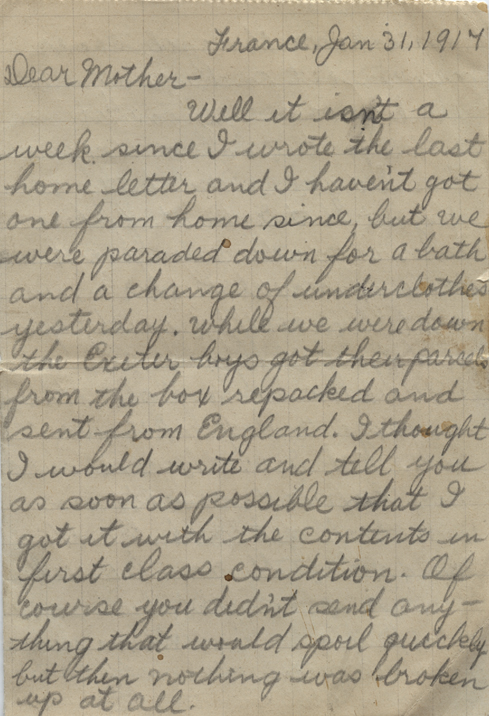 France, Jan 31, 1917
Dear Mother-
Well it isn't a
week since I wrote the last
home letter and I haven't got
one from home since, but we
were paraded down for a bath
and a change of underclothes
yesterday. While we were down
the Exeter boys got their parcels
from the box repacked and
sent from England. I thought
I would write and tell you
as soon as possible that I
got it with the contents in
first class condition. Of
course you didn't send any-
thing that would spoil quickly
but then nothing was broken
up at all.